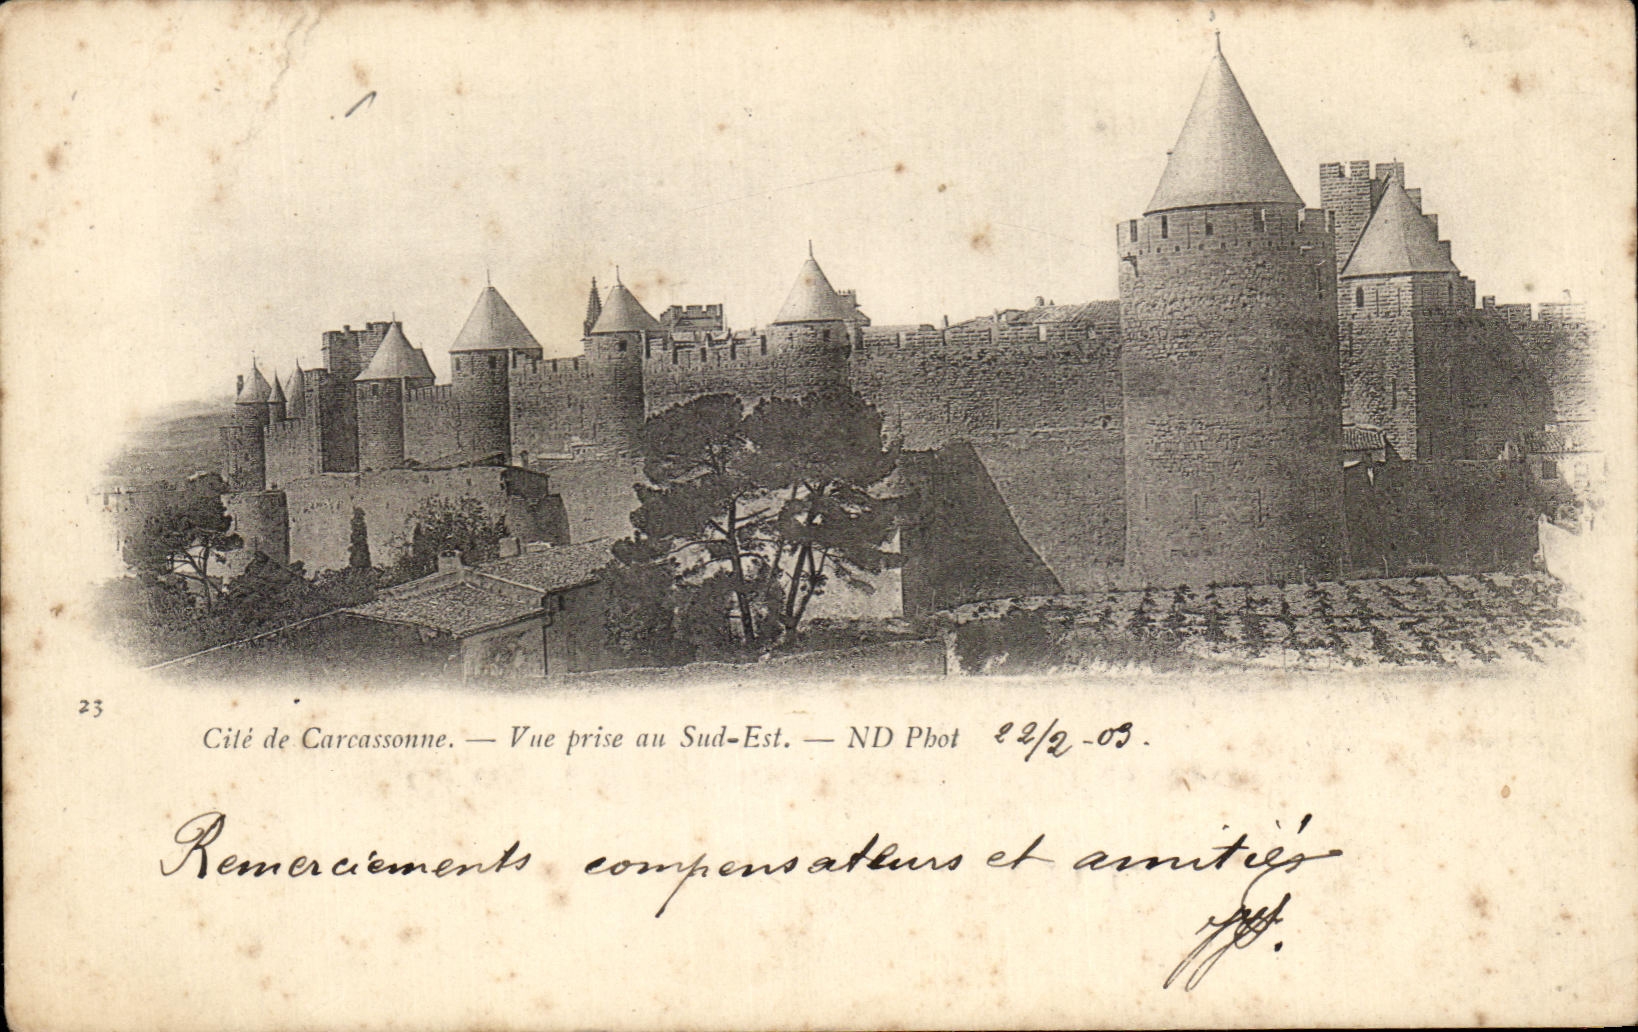 23
Cité de Carcassonne. — Vue prise au Sud-Est. — ND Phot 22/2-03.
Remerciements compensateurs et amitiés